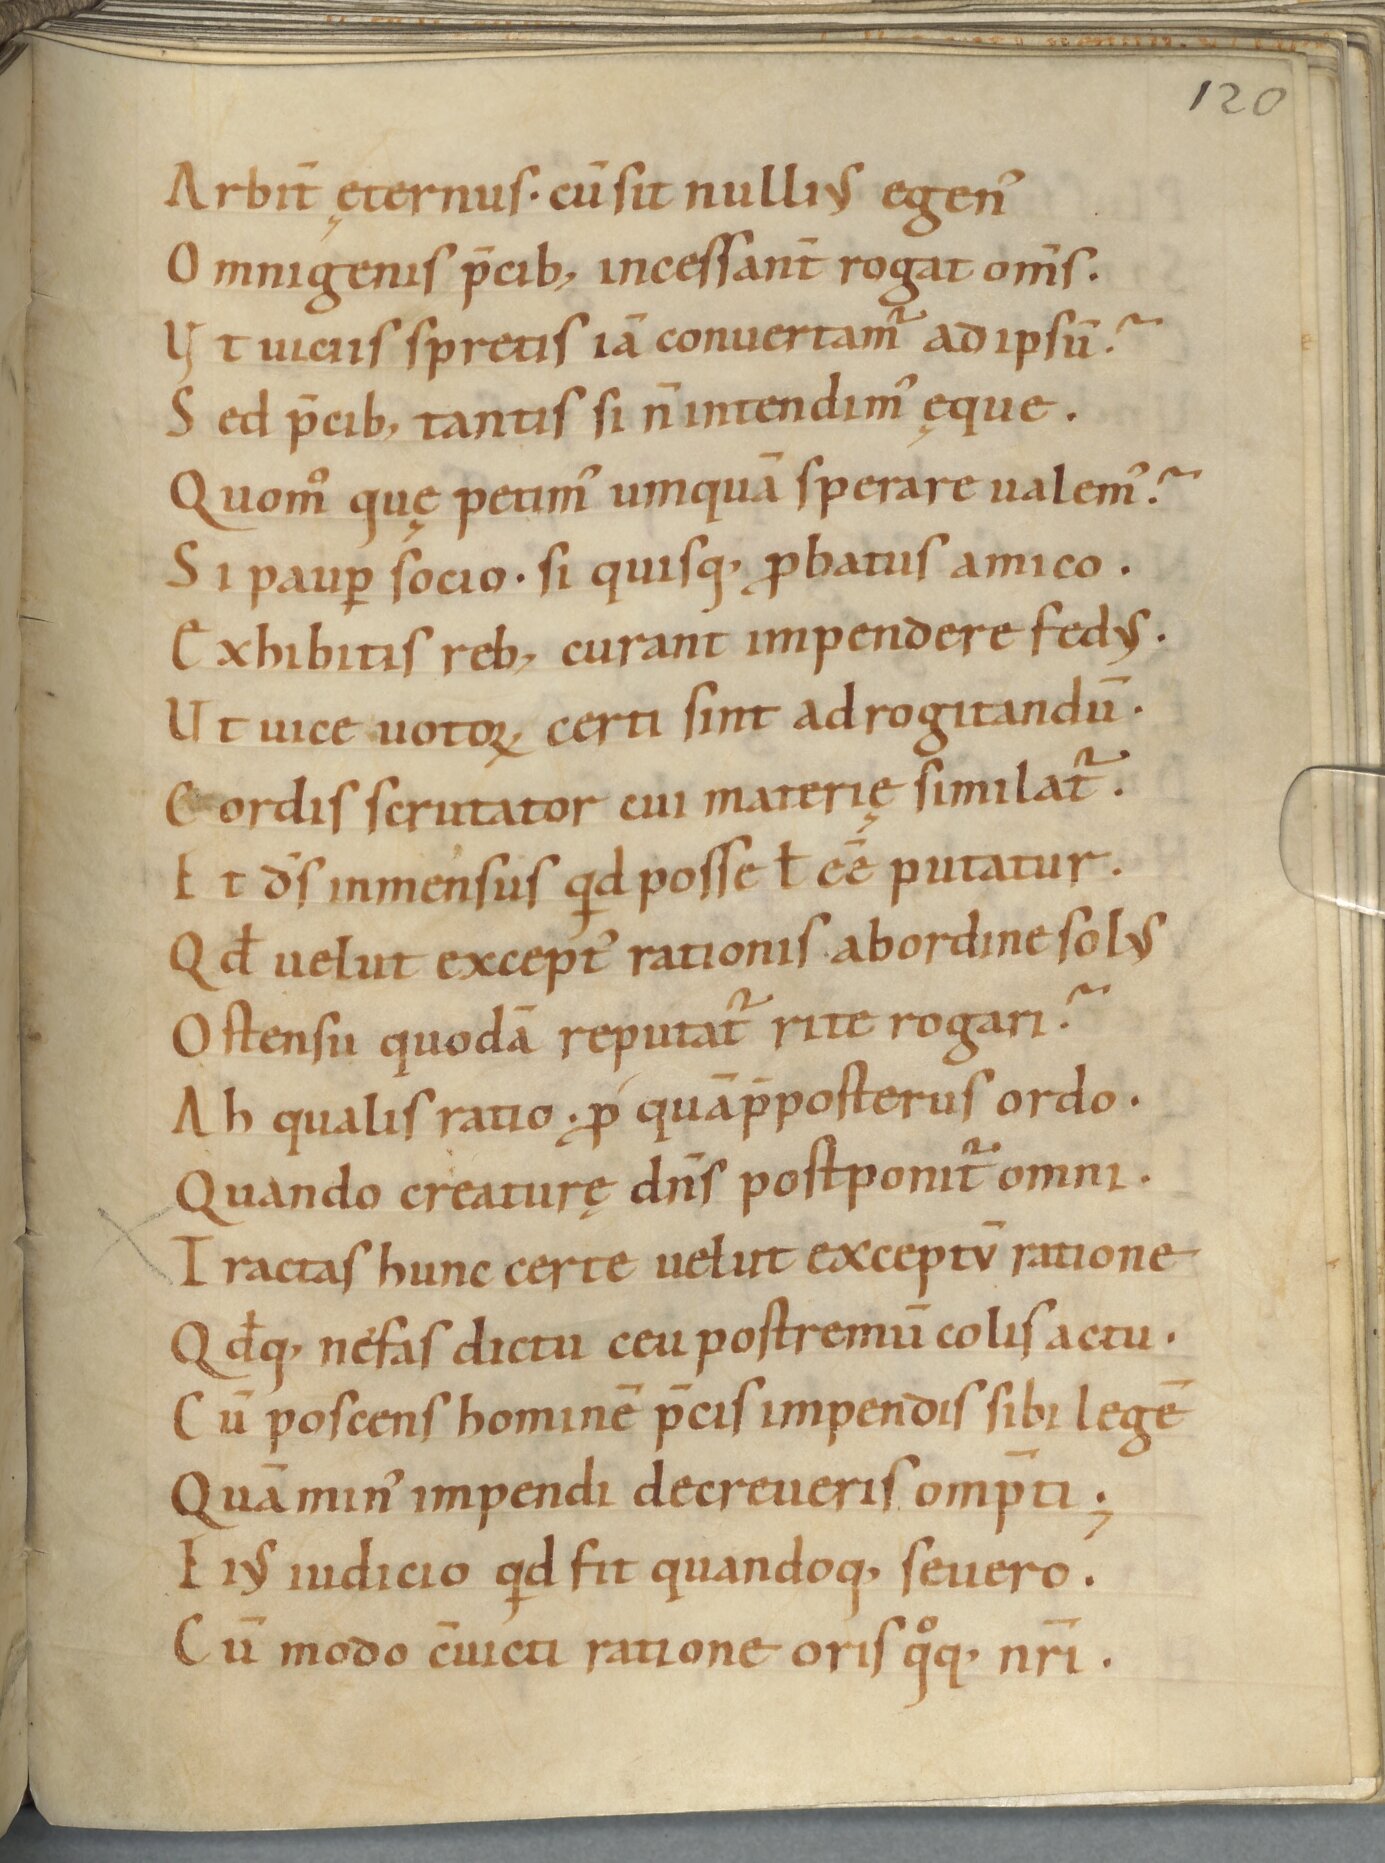 120
Arbit̄ ęternus· cū sit nulliꝰ egen᾽
Omnigenis p̄cib, incessant̄ rogat om̄s.
Ut uiciis spretis iā conuertam᷑ ad ipsū.~
Sed p̄cib, tantis si n̄ intendim᾽ ęque.
Quom̊ quę petim᾽ umquā sperare ualem᾽.~
Si paup̱ socio· si quisq, ꝓbatus amico.
Exhibitis reb, curant impendere fedꝰ.
Ut uice uotoꝝ certi sint ad rogitandū·
Cordis scrutator cui materię similat᷑.
Et d̄s inmensus qd posse ł ēē putatur.
Qđ uelut except᾽ rationis ab ordine solꝰ
Ostensu quodā reputat᷑ rite rogari.~
Ah qualis ratio· ꝓ quā p̄posterus ordo.
Quando creaturę dn̄s postponit᷑ omni.
Tractas hunc certe uelut exceptv̄ ratione
Qđq, nefas dictu ceu postremū colis actu.
Cū poscens hominē p̄cis impendis sibi legē
Quā min᾽ impendi decreueris omp̄ti;
Eiꝰ iudicio qd fit quandoq, seuero.
Cū modo c̄uicti ratione oris q̊q, nr̄i.